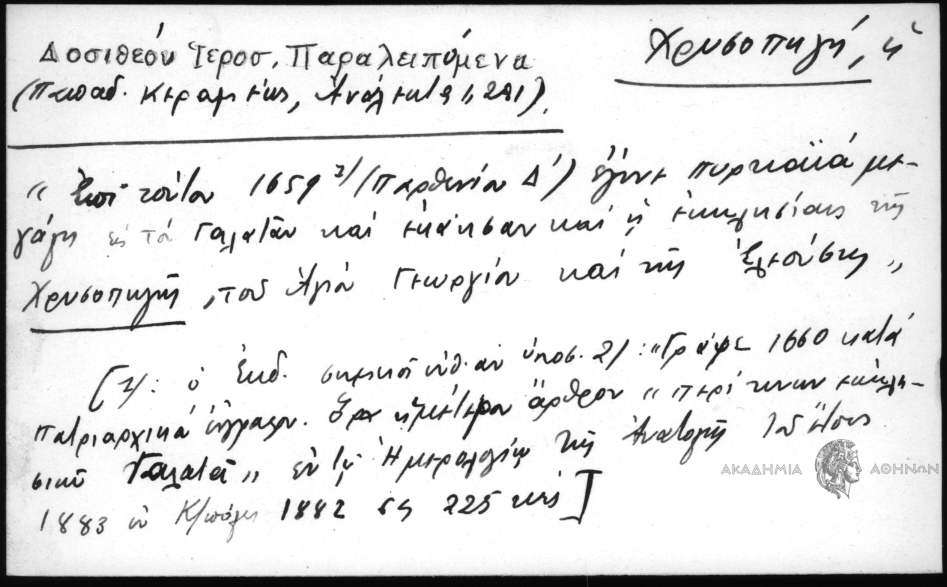 Δοσιθεόυ Ἱεροσ. Παραλειπόμενα
Χρυσοπηγή, ἡ
(Παπαδ. Κεραμεύς, Ἀνάλεκτα 1, 291).
"Ἐπὶ τούτου 1659 2/ (Παρθενίου Δ') ἐγένετο πυρκαϊά με-
γάλη εἰς τὸ Γαλατᾶν καὶ ἐκάησαν καὶ ἡ ἐκκλησίαις τῆς
Χρυσοπηγῆς, τοῦ Ἁγίου Γεωργίου καὶ τῆς Ἐλεούσης"
[2/: ὁ Ἐκδ. σημειοῖ ἐνθ. ἀν. ὑποσ. 2/: "Γράφε 1660 κατά
πατριαρχικά ἔγγραφον. Ὅρα ἡμέτερον ἄρθρον "περί τινων ἐκκλη-
σιῶν Γαλατᾶ" ἐν τῷ Ἡμερολογίῳ τῆς Ἀνατολῆς τοῦ ἔτους
1883 ἐν Κ/πόλει 1882 σς 225 κἑξ]
ΑΚΑΔΗΜΙΑ ΑΘΗΝΩΝ